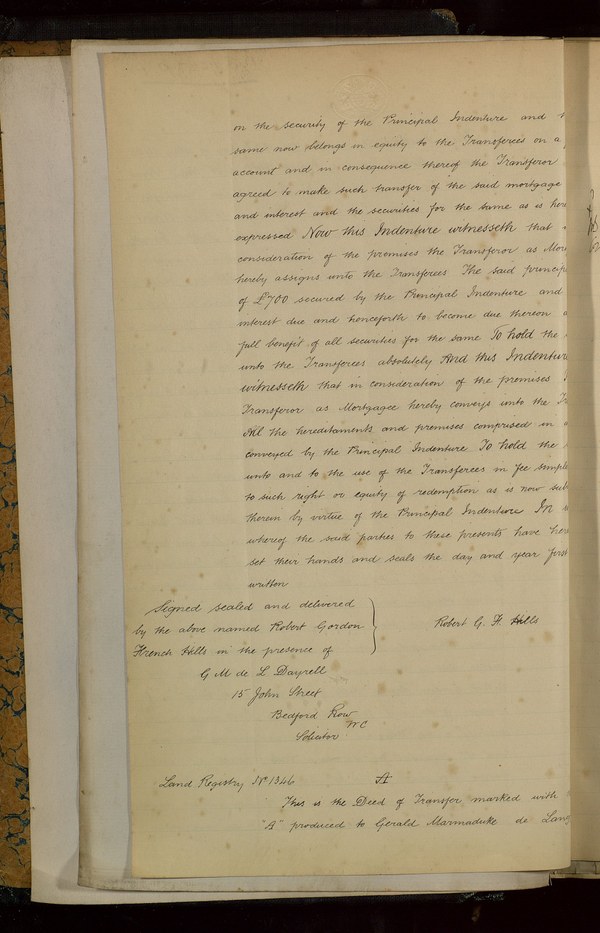 on the security of the Principal Indenture and
same now belongs in equity to the Transferees on a
account and in consequence thereof the Transferor
agreed to make such transfer of the said mortgage
and interest and the securities for the same as is here
expressed Now this Indenture witnesseth that
consideration of the premises the Transferor as Mor
hereby assigns unto the Transferees The said princip
of £700 secured by the Principal Indenture and
interest due and henceforth to become due thereon
full benefit of all securities for the same To hold the
unto the Transferees absolutely And this Indentur
witnesseth that in consideration of the premises
Transferor as Mortgagee hereby conveys unto the Tr
All the hereditaments and premises comprised in
conveyed by the Principal Indenture To hold the
unto and to the use of the Transferees in fee simple
to such right or equity of redemption as is now sub
therein by virtue of the Principal Indenture In
whereof the said parties to these presents have here
set their hands and seals the day and year first
written
Signed sealed and delivered
by the above named Robert Gordon
French Hills in the presence of
Robert G. F. Hills
G M de L Dayrell
15 John Street
Bedford Row
W C
Solicitor
Land Registry No 1346
A
This is the Deed of Transfer marked with
"A" produced to Gerald Marmaduke de Lan